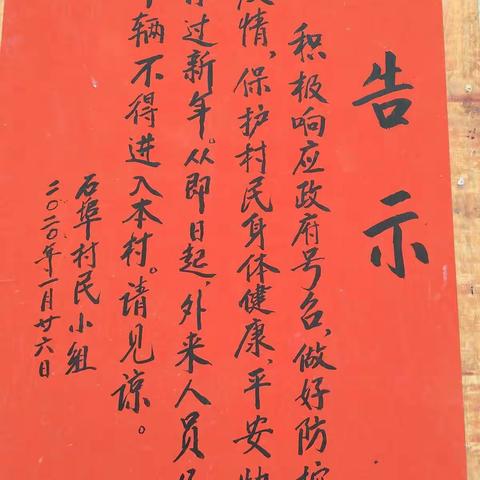 告示
积极响应政府号召，做好防控
疫情，保护村民身体健康、平安快
过新年。从即日起，外来人员
辆不得进入本村。请见谅。
石埠村民小组
二〇二〇年一月廿六日